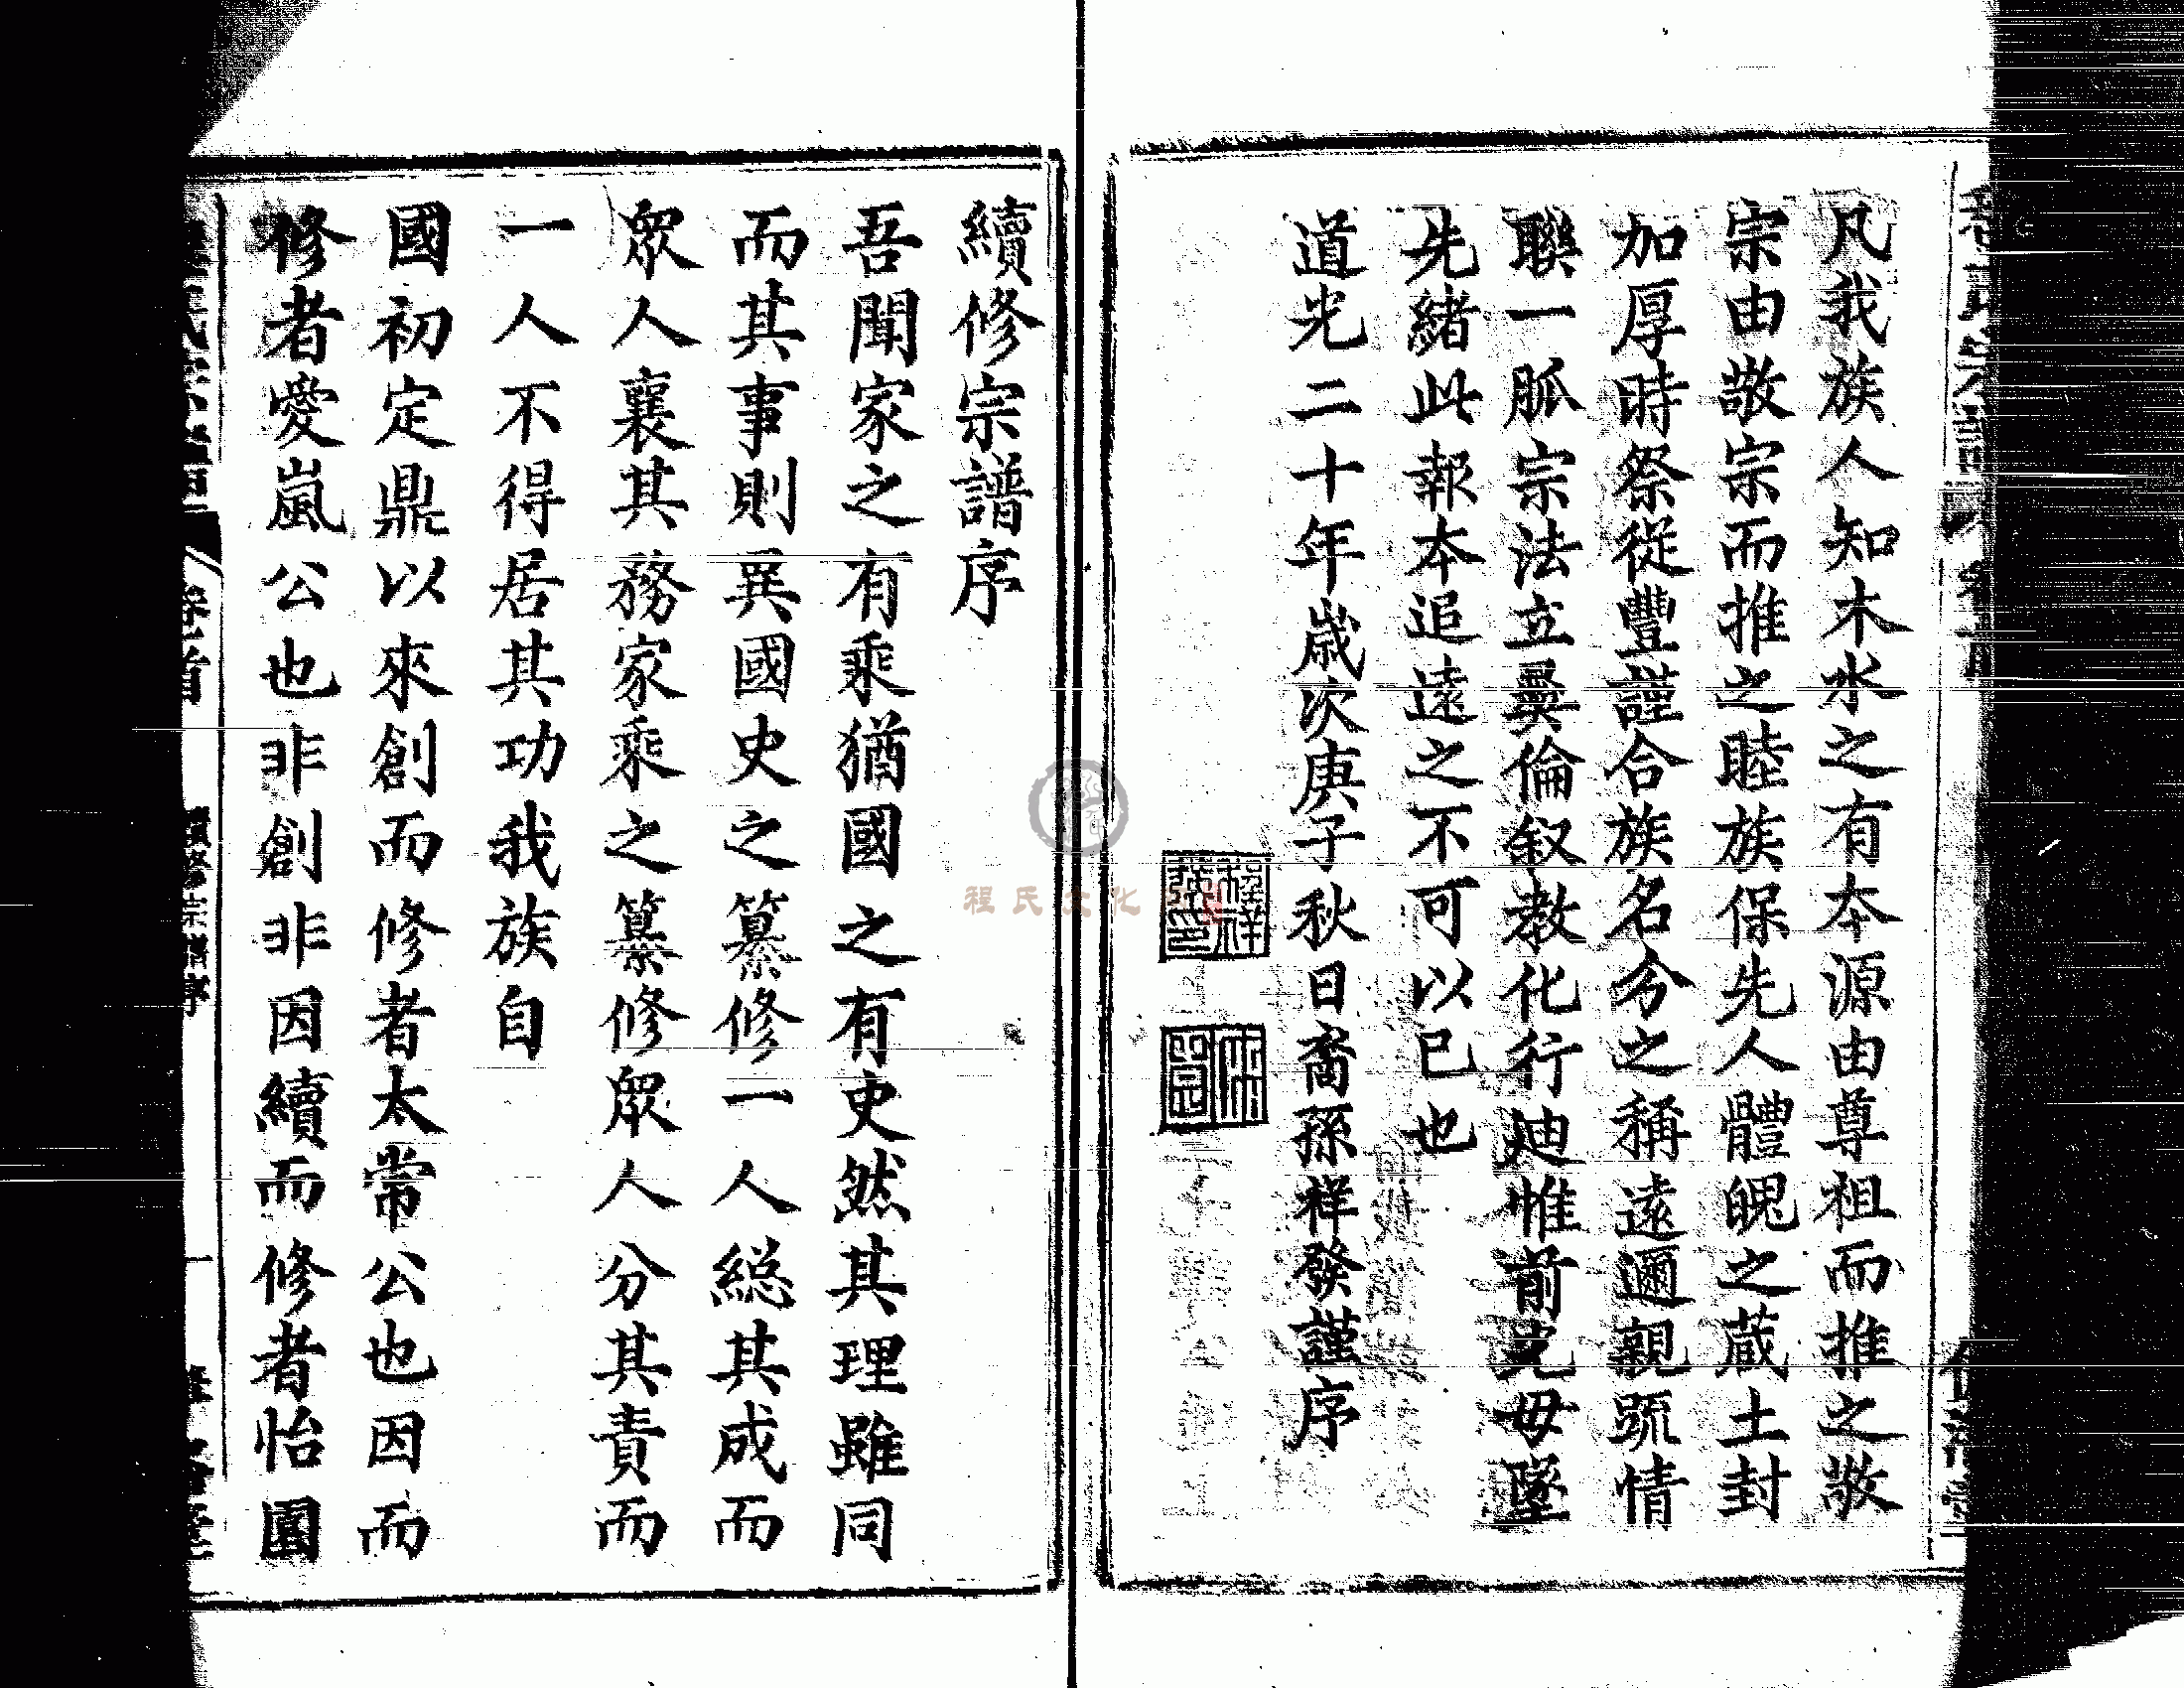 凡我族人知木水之有本源由尊祖而推之敬
宗由敬宗而推之睦族保先人體魄之蔵土封
加厚時祭從豐謹合族名分之稱遠邇親疏情
聯一脈宗法立彞倫叙教化行廸惟前光毋墜
先緒此報本追遠之不可以已也
道光二十年歳次庚子秋日裔孫祥發謹序
續修宗譜序
吾聞家之有乘猶國之有史然其理雖同
而其事則異國史之纂修一人総其成而
眾人襄其務家乘之纂修眾人分其責而
一人不得居其功我族自
國初定鼎以來創而修者太常公也因而
修者愛嵐公也非創非因續而修者怡園
卷首
續修宗譜序
一
程氏文化